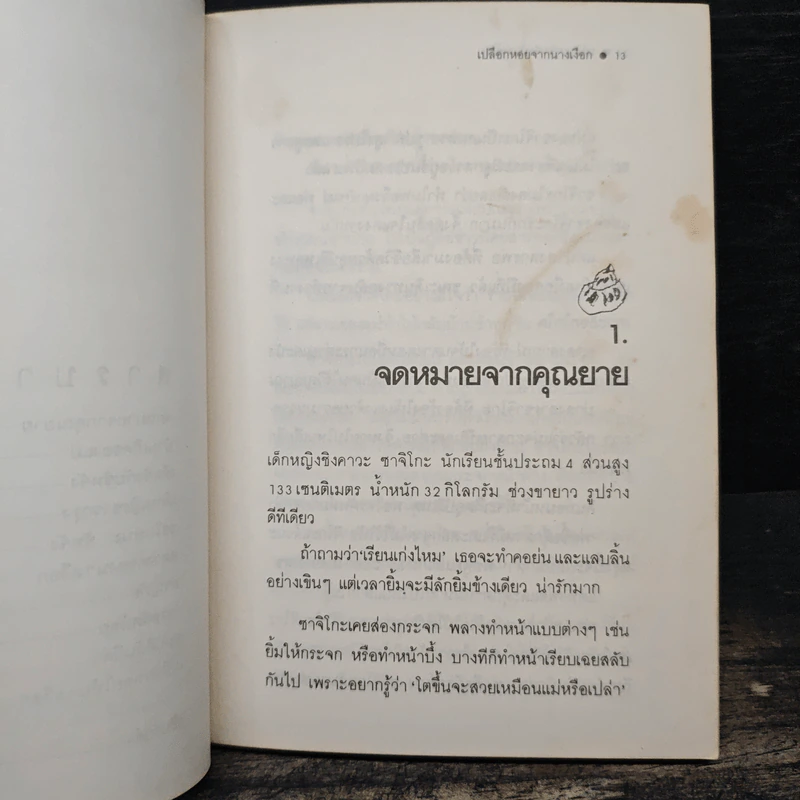 เปลือกหอยจากนางเงือก ● 13
1.
จดหมายจากคุณยาย
เด็กหญิงชิงคาวะ ซาจิโกะ นักเรียนชั้นประถม 4 ส่วนสูง
133 เซนติเมตร น้ำหนัก 32 กิโลกรัม ช่วงขายาว รูปร่าง
ดีทีเดียว
ถ้าถามว่า‘เรียนเก่งไหม’ เธอจะทำคอย่น และแลบลิ้น
อย่างเขินๆ แต่เวลายิ้มจะมีลักยิ้มข้างเดียว น่ารักมาก
ซาจิโกะเคยส่องกระจก พลางทำหน้าแบบต่างๆ เช่น
ยิ้มให้กระจก หรือทำหน้าบึ้ง บางทีก็ทำหน้าเรียบเฉยสลับ
กันไป เพราะอยากรู้ว่า ‘โตขึ้นจะสวยเหมือนแม่หรือเปล่า’